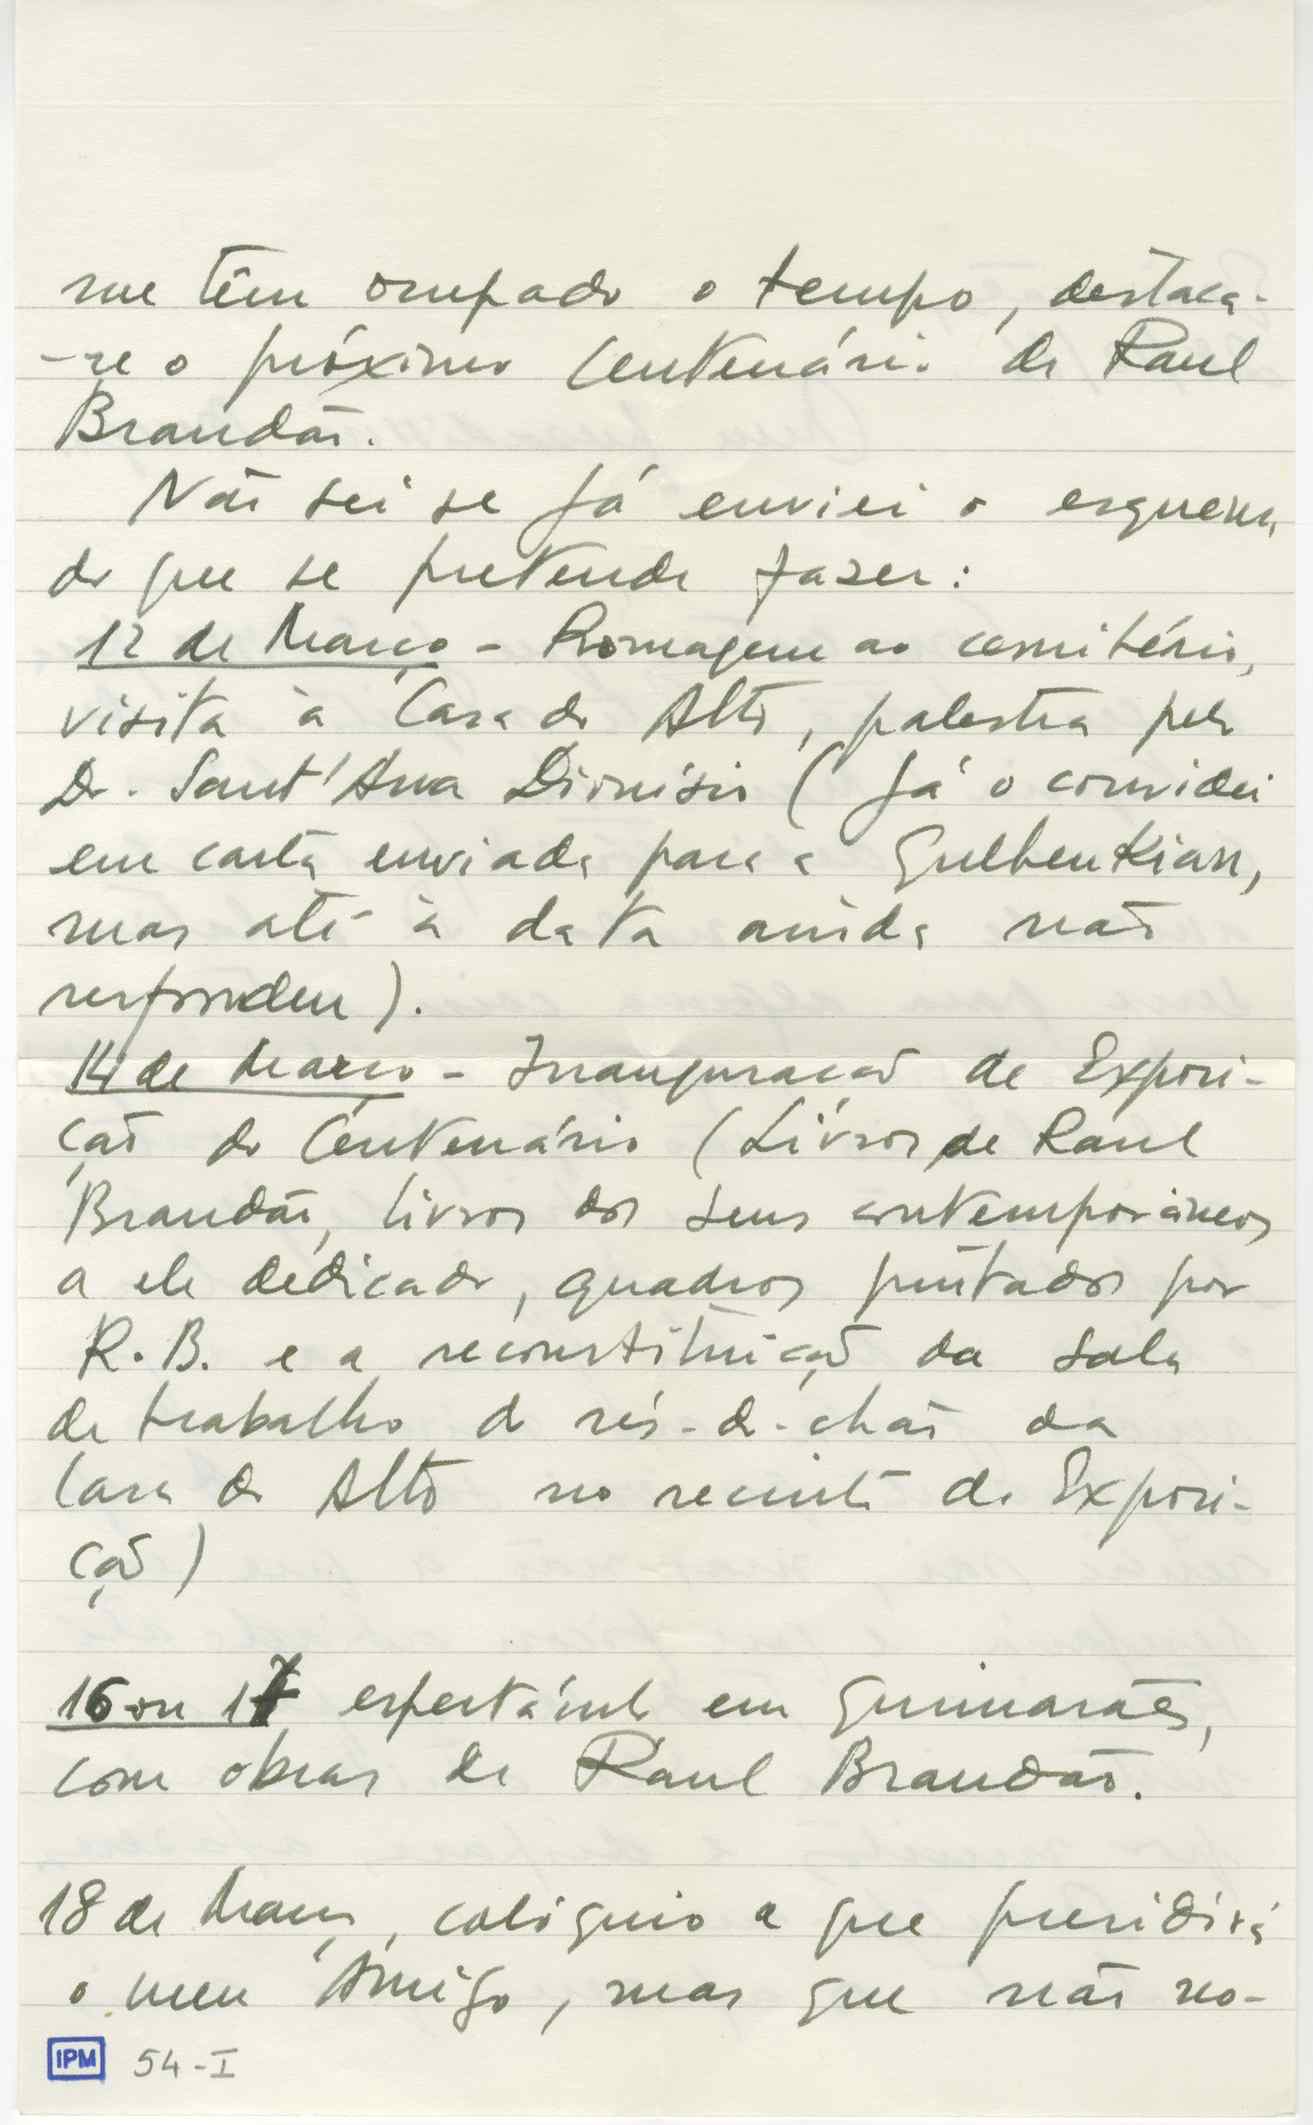 me têm ocupado o tempo, destaca-
-se o próximo Centenário de Raul
Brandão.
Não sei se já enviei o esquema
do que se pretende fazer:
12 de Março - Romagem ao cemitério,
visita à Casa do Alto, palestra pelo
Dr. Sant'Ana Dionísio (já o convidei
em carta enviada para a Gulbenkian,
mas até à data ainda não
respondeu).
14 de Março - Inauguração de Exposi-
ção do Centenário (Livros de Raul
Brandão, livros dos seus contemporâneos
a ele dedicado, quadros pintados por
R. B. e a reconstituição da sala
de trabalho do rés-do-chão da
Casa do Alto no recinto da Exposi-
ção)
16 ou 17 espectáculo em Guimarães,
com obras de Raul Brandão.
18 de Março, colóquio a que presidirá
o meu Amigo, mas que não no-
IPM 54-I